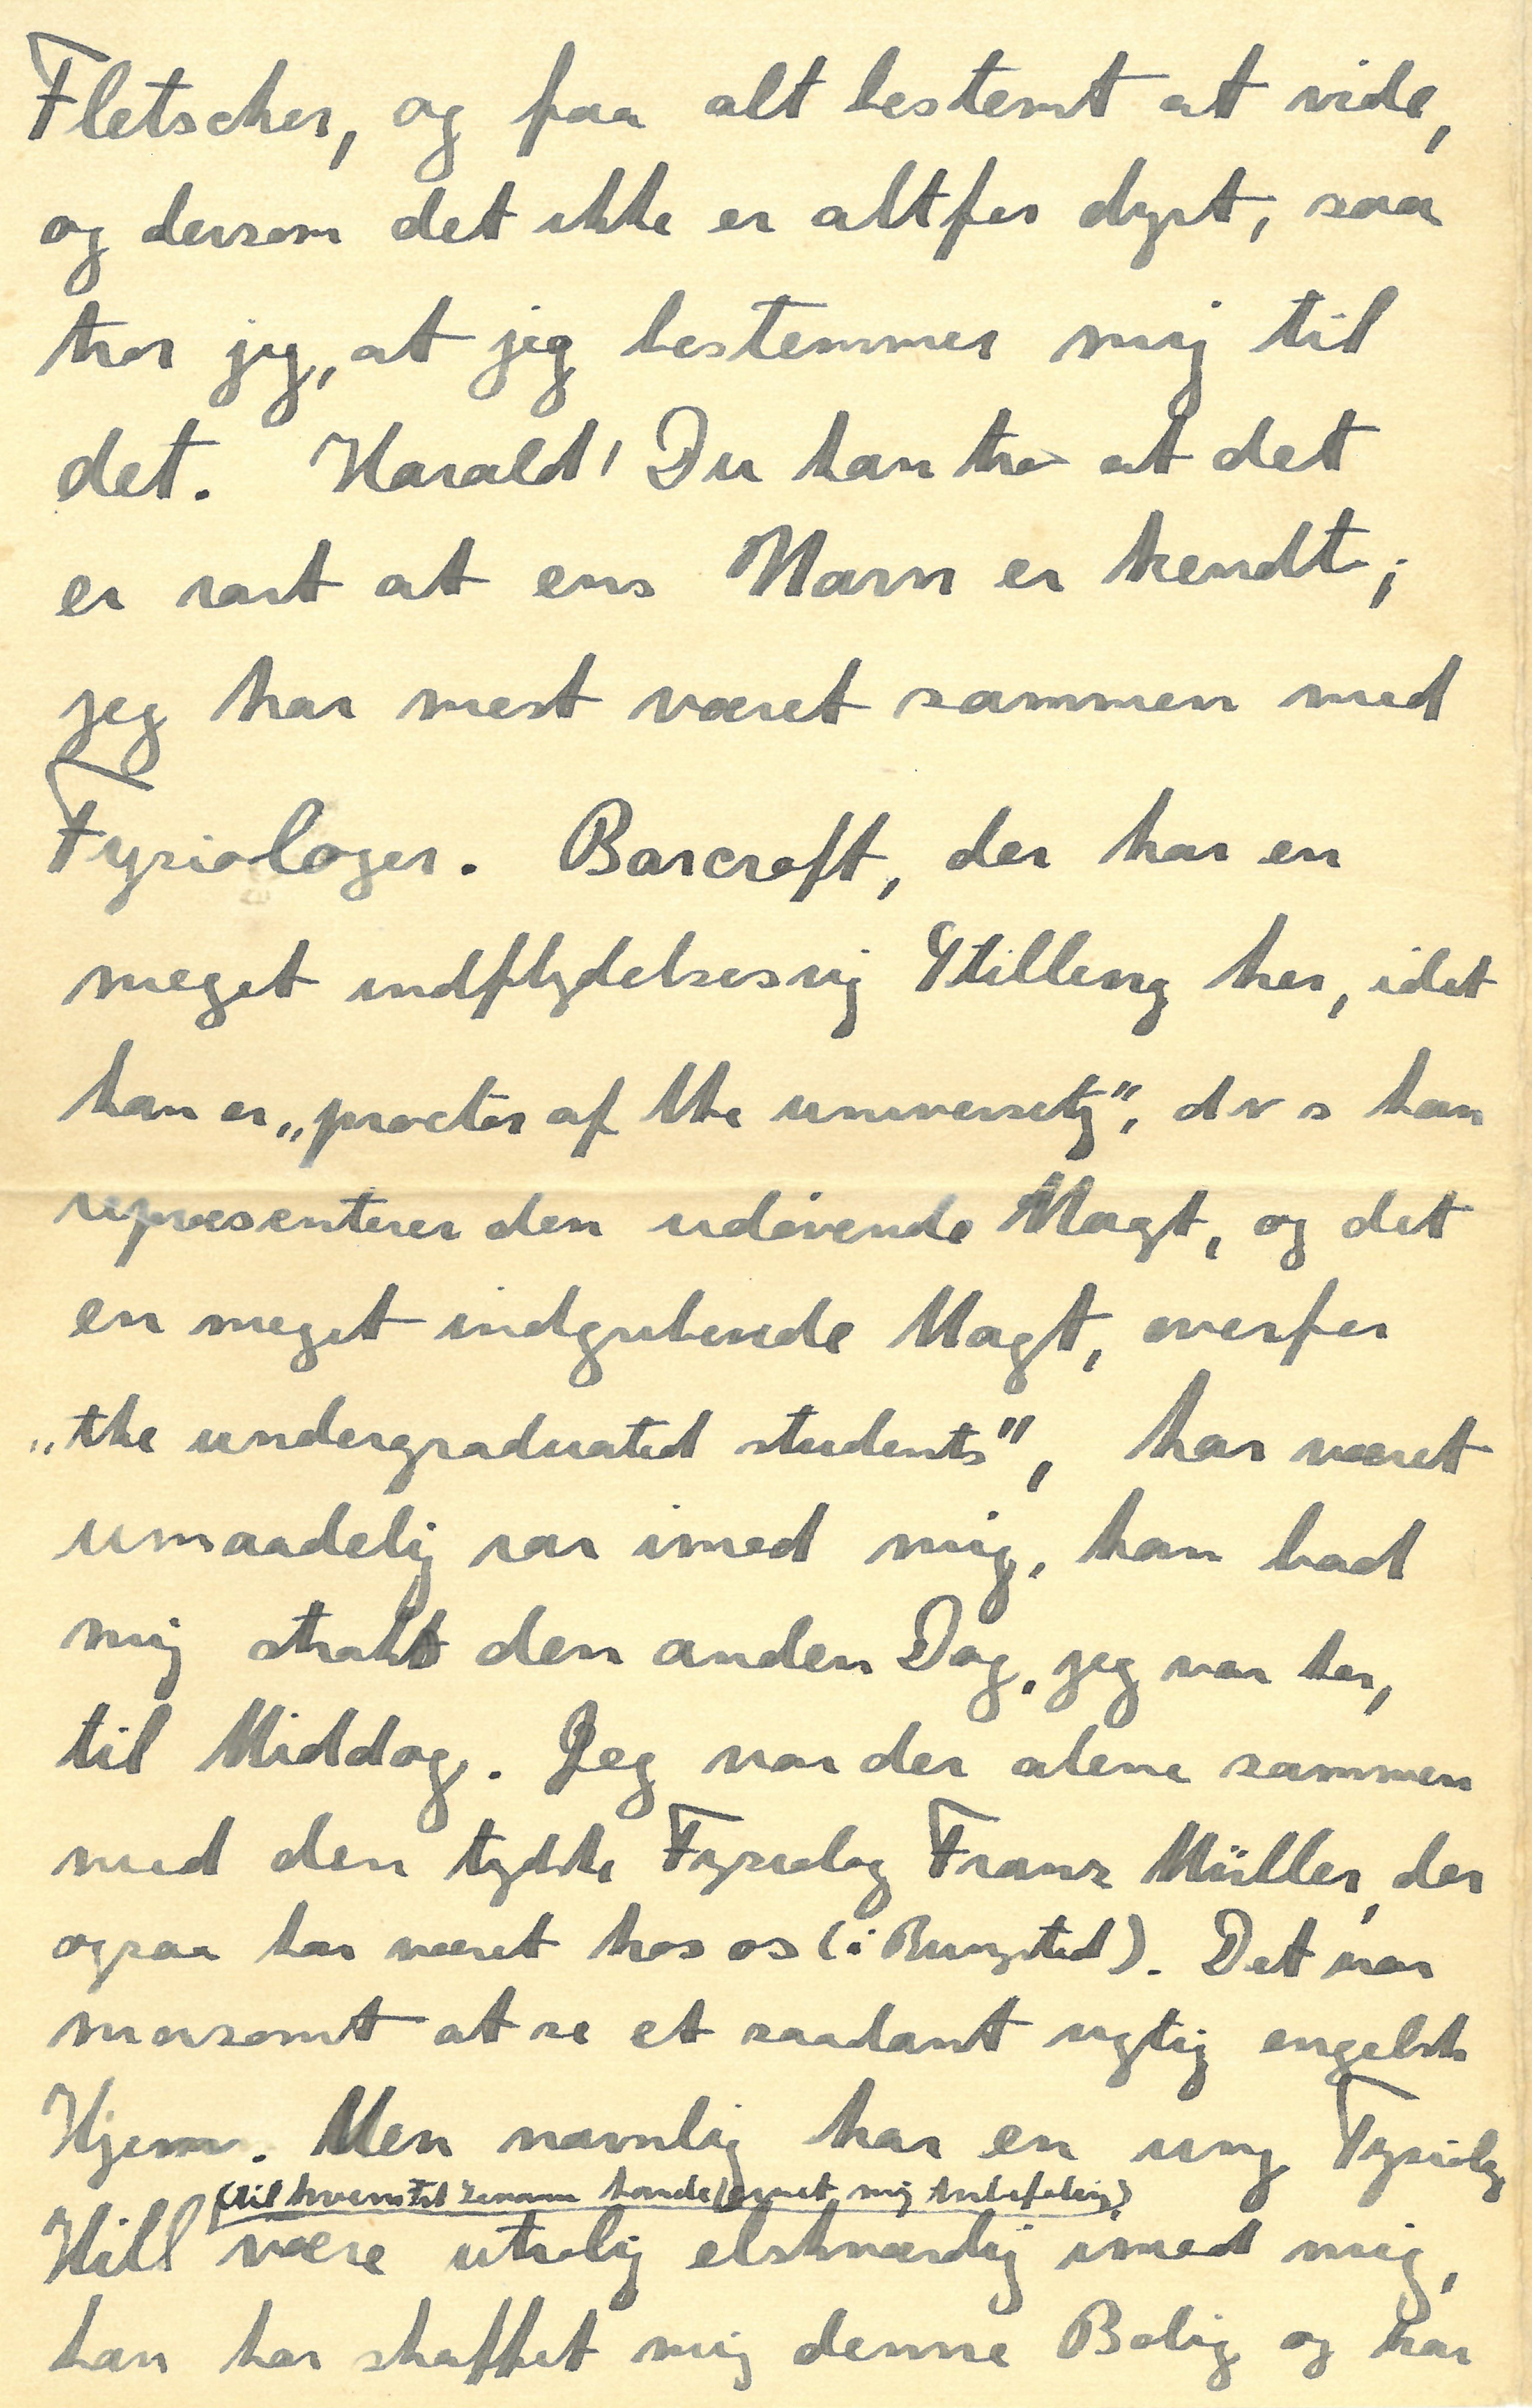 Fletscher, og faa alt bestemt at vide,
og dersom det ikke er altfor dyrt, saa
tror jeg, at jeg bestemmer mig til
det. Harald! Du kan tro at det
er rart at ens Navn er kendt;
jeg har mest været sammen med
Fysiologer. Barcroft, der har en
meget indflydelsesrig Stilling her, idet
han er „proctor of the university", d v s han
repræsenterer den udøvende Magt, og det
en meget indgribende Magt, overfor
„the undergraduated students", har været
umaadelig rar imod mig, han bad
mig straks den anden Dag, jeg var her,
til Middag. Jeg var der alene sammen
med den tydske Fysiolog Franz Müller, der
ogsaa har været hos os (i Bungsted). Det var
morsomt at se et saadant rigtig engelsk
Hjem. Men navnlig har en ung Fysiolog
(til hvem havde mig Anbefaling)
Hill være utrolig elskværdig imod mig,
han har skaffet mig denne Bolig og har